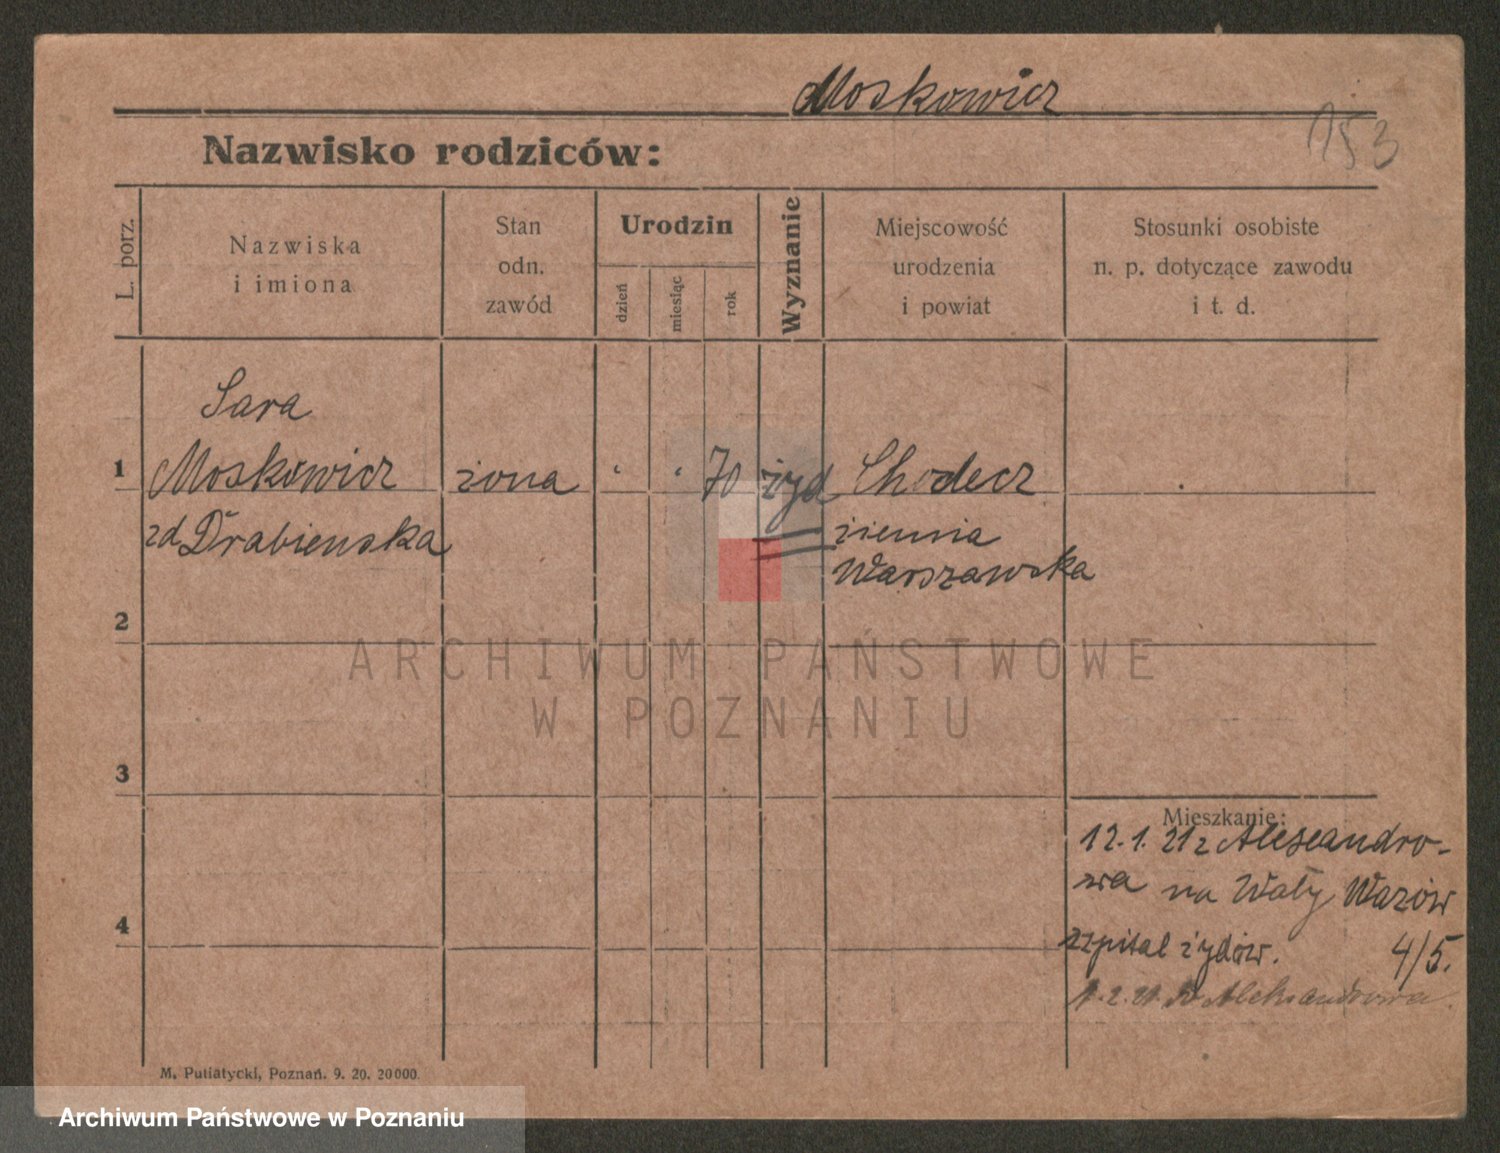 Moskowicz
153
Nazwisko rodziców:
L. porz.
Nazwiska
i imiona
Stan
odn.
zawód
Urodzin
dzień
miesiąc
rok
Wyznanie
Miejscowość
urodzenia
i powiat
Stosunki osobiste
n. p. dotyczące zawodu
i t. d.
Sara
1 Moskowicz żona 70 żyd Chodecz
zd Drabienska ziemia
Warszawska
2
ARCHIWUM PAŃSTWOWE
W POZNANIU
3
Mieszkanie:
12.1.21 z Aleseandro-
wa na Wały Wazów
4 szpital żydów. 4/5.
1.2.21. do Aleksandrowa.
M. Putiatycki, Poznań. 9. 20. 20000.
Archiwum Państwowe w Poznaniu